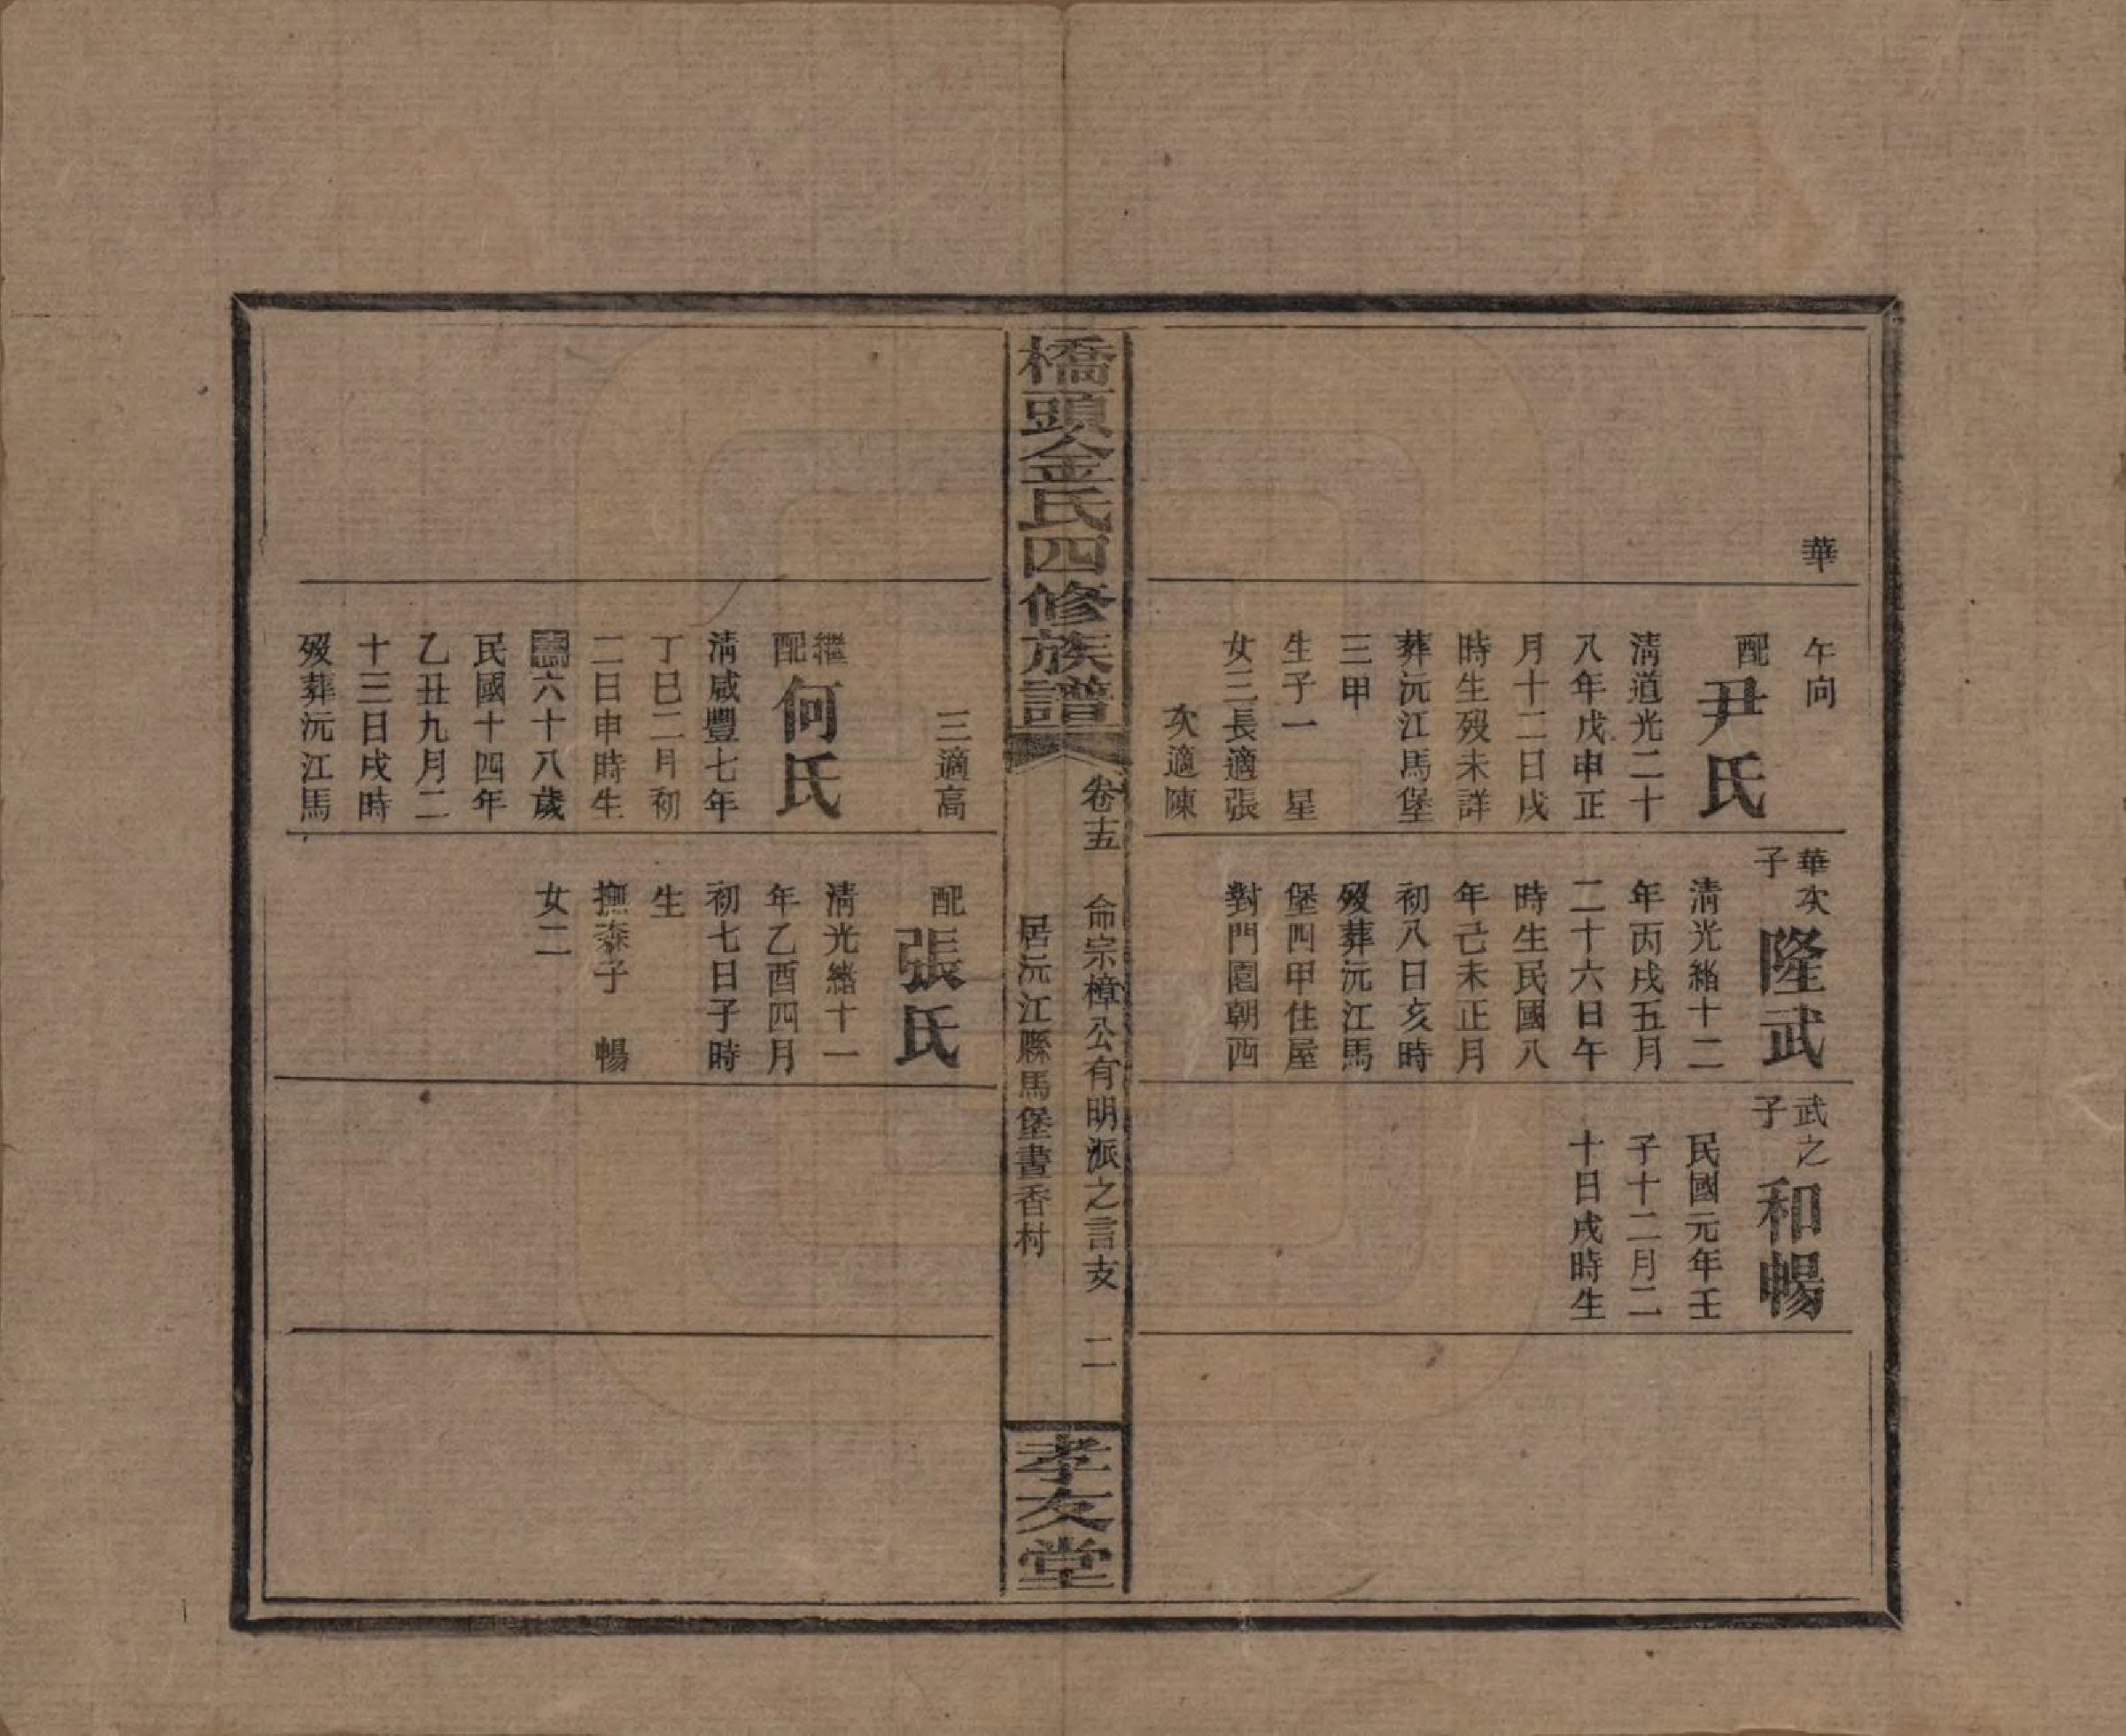 華
午向
配
尹氏
清道光二十
八年戊申正
月十二日戌
時生歿未詳
葬沅江馬堡
三甲
生子一　星
女三長適張
次適陳
華次
子
隆武
清光緒十二
年丙戌五月
二十六日午
時生民國八
年己未正月
初八日亥時
歿葬沅江馬
堡四甲住屋
對門園朝西
武之
子
和暢
民國元年壬
子十二月二
十日戌時生
橋頭金氏四修族譜
卷十五　侖宗樟公有明派之言支　二
居沅江縣馬堡書香村
孝友堂
三適高
繼
配
何氏
清咸豐七年
丁巳二月初
二日申時生
壽六十八歲
民國十四年
乙丑九月二
十三日戌時
歿葬沅江馬
配
張氏
清光緒十一
年乙酉四月
初七日子時
生
撫森子　暢
女二